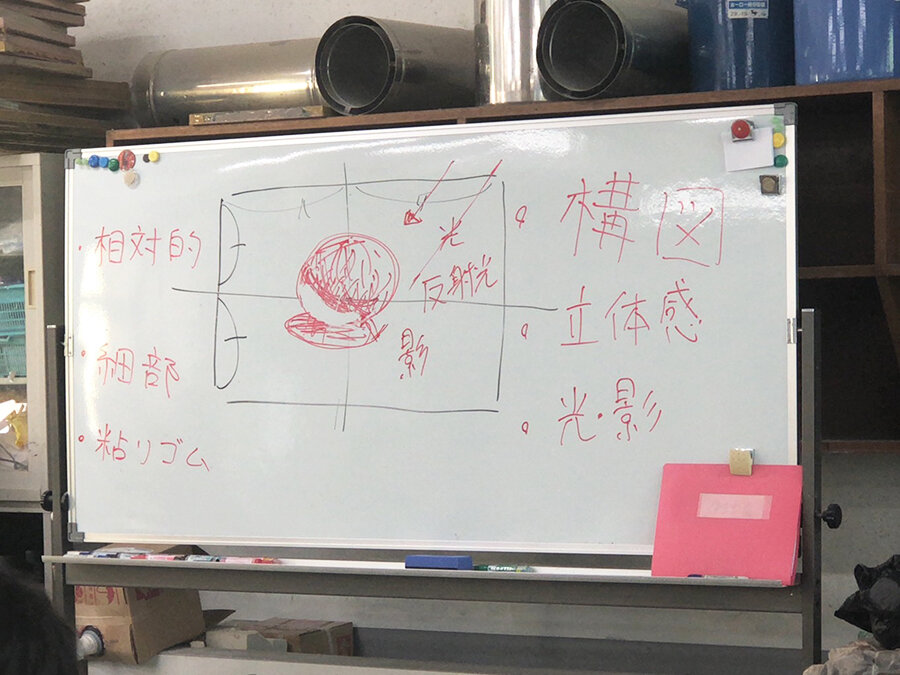 ・相対的
・細部
・粘りゴム
光
反射光
影
・構図
・立体感
・光・影